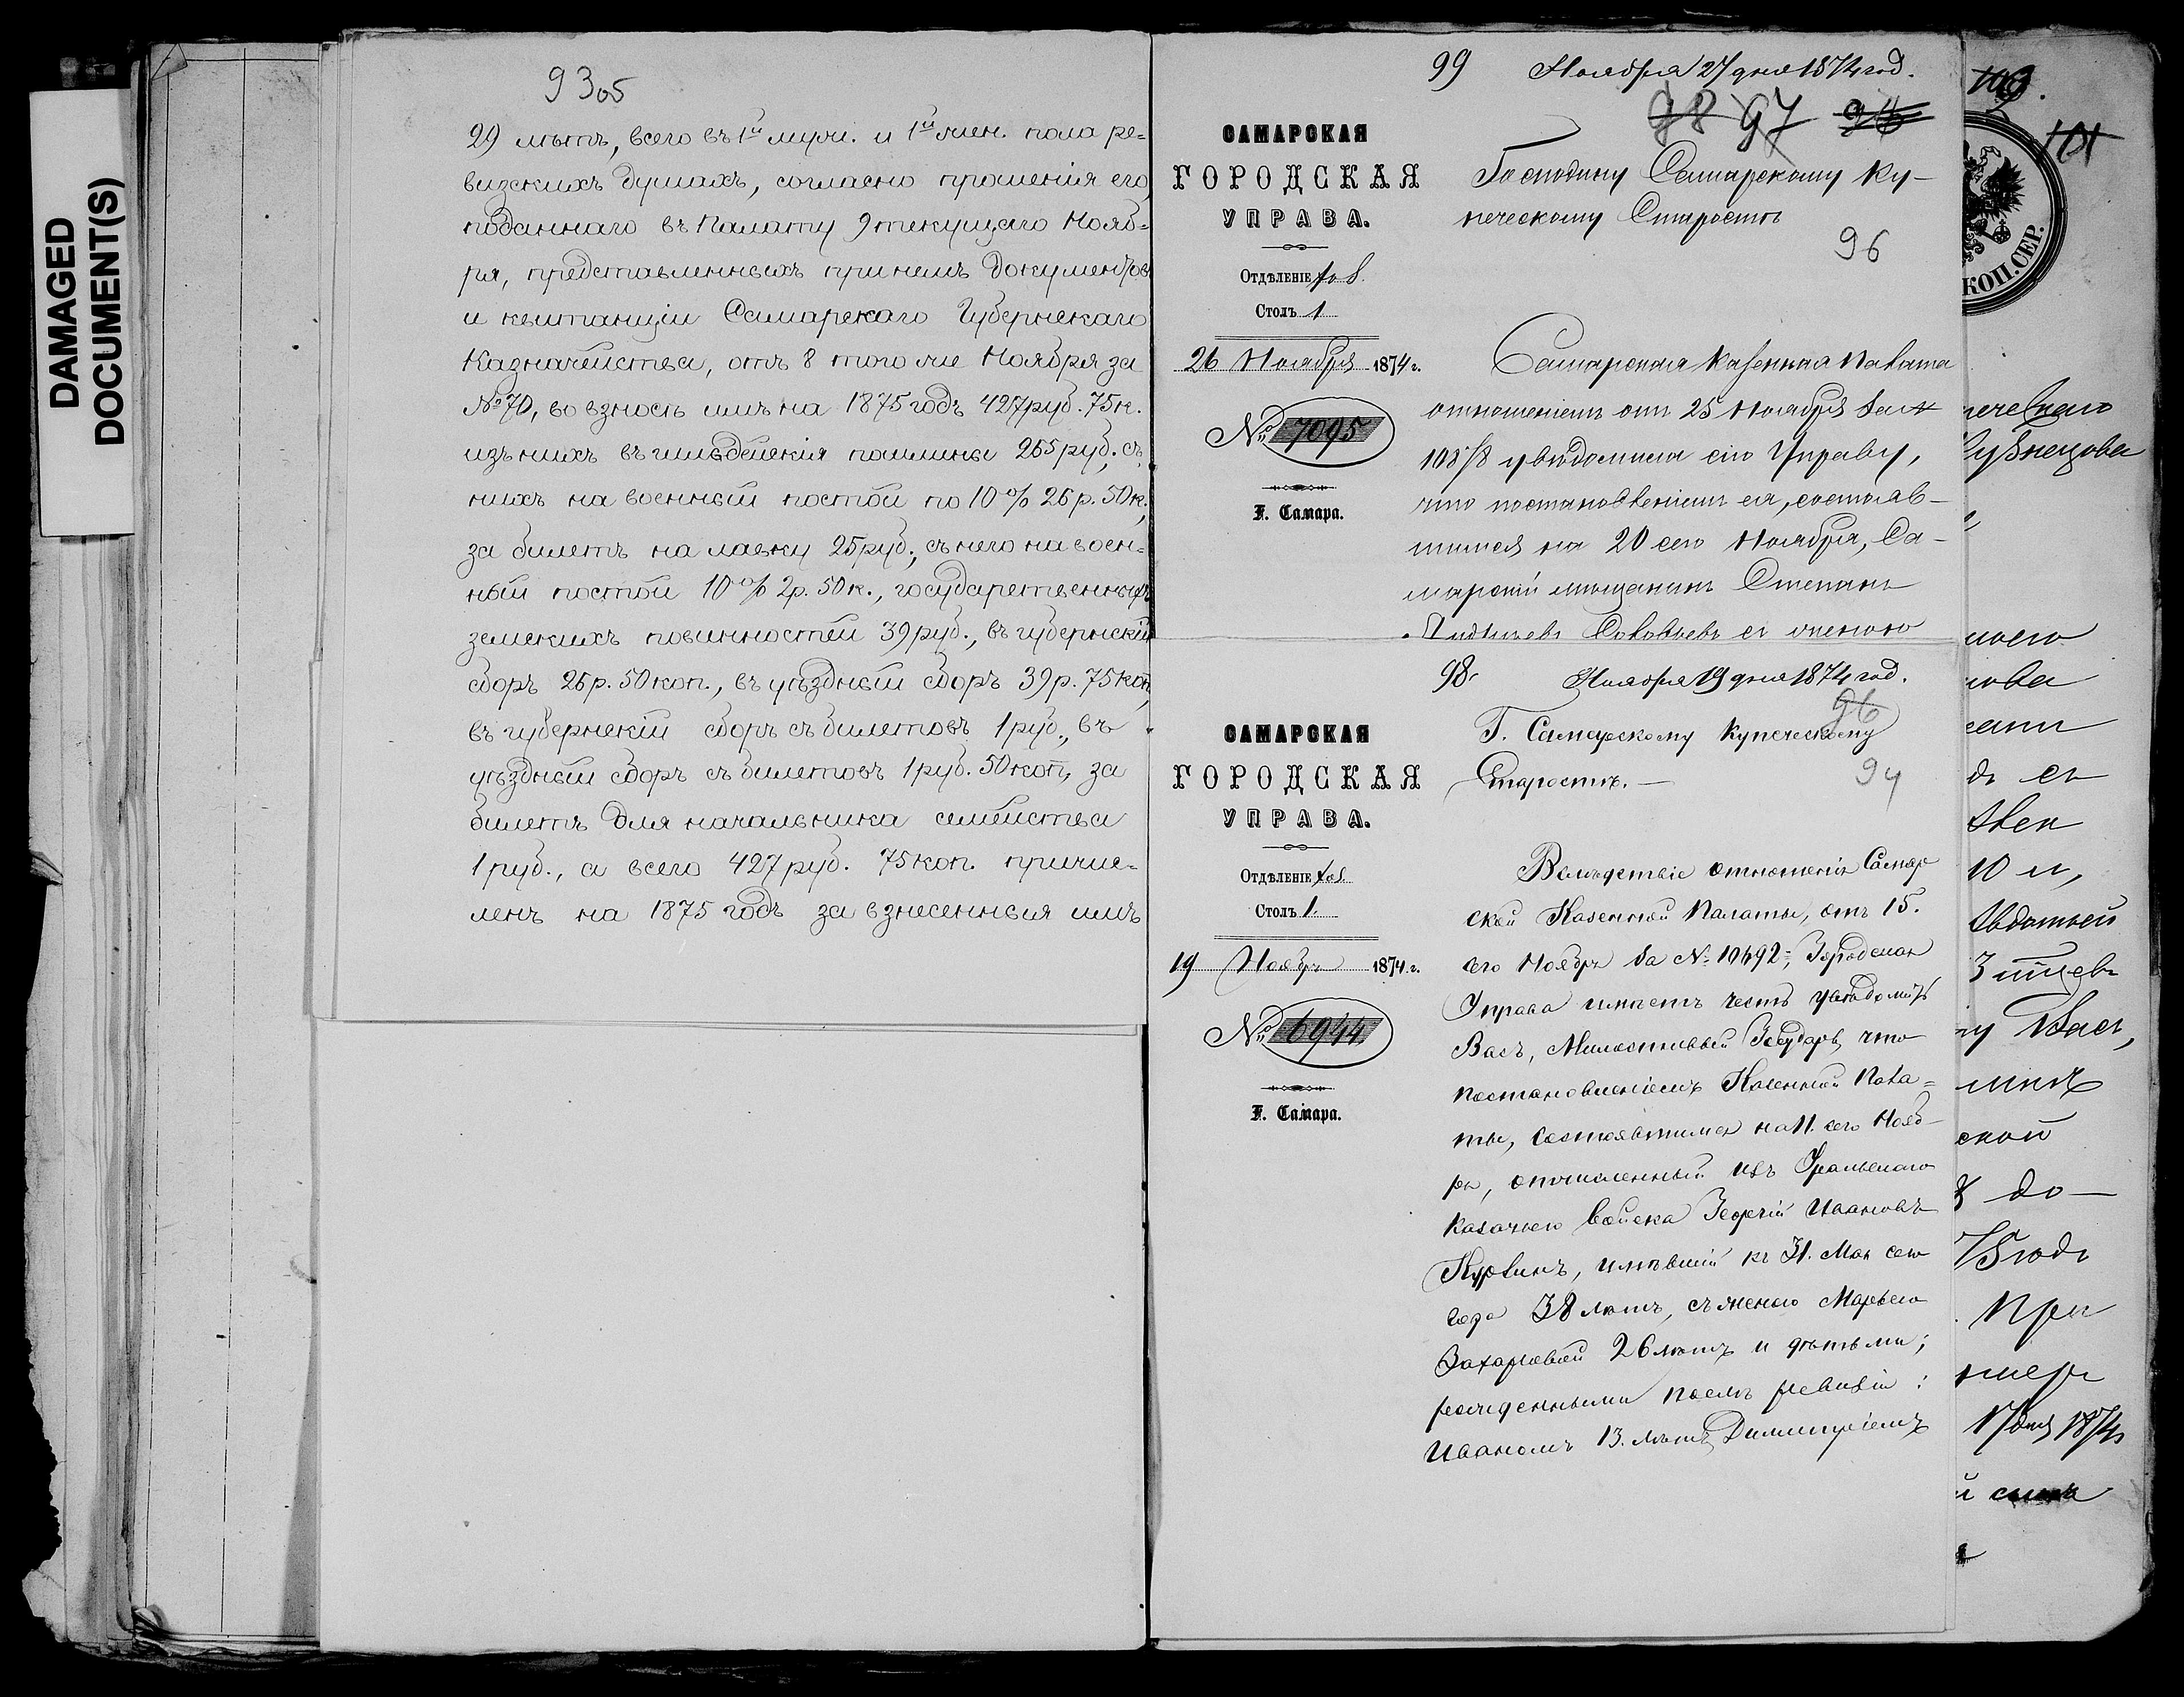 DAMAGED
DOCUMENT(S)
93об
29 лѣтъ, всего въ 1й муж. и 1й жен. пола ре=
визскихъ душахъ, согласно прошенія его,
поданнаго въ Палату 9 текущаго Нояб=
ря, представленныхъ при немъ документовъ
и квитанціи Самарскаго Губернскаго
Казначейства, отъ 8 того же Ноября за
№ 70, во взносѣ имъ на 1875 годъ 427 руб. 75 к.
изъ нихъ въ гильдейскія пошлины 265 руб., съ
нихъ на военный постой по 10% 26 р. 50 к.,
за билетъ на лавку 25 руб., съ него на воен=
ный постой 10% 2 р. 50 к., государственныхъ
земскихъ повинностей 39 руб., въ губернскій
сборъ 26 р. 50 коп., въ уѣздный сборъ 39 р. 75 коп,
въ губернскій сборъ съ билетовъ 1 руб., въ
уѣздный сборъ съ билетовъ 1 руб. 50 коп., за
билетъ для начальника семейства
1 руб., а всего 427 руб. 75 коп. причис=
ленъ на 1875 годъ за взнесенныя имъ
99 Ноября 27 дня 1874 год.
98 97
САМАРСКАЯ
ГОРОДСКАЯ
УПРАВА.
Отдѣленіе
Столъ 1
26 Ноября 1874 г.
№ 7095
Г. Самара.
Господину Самарскому Ку-
печескому Старостѣ
96
Самарская Казенная Палата
отношеніемъ отъ 25 Ноября за №
10878 увѣдомила сію Управу,
что постановленіемъ ея, состояв-
шимся на 20 сего Ноября, Са-
марскій мѣщанинъ Степанъ
Соловьевъ съ женою
98. Ноября 19 дня 1874 год.
96
САМАРСКАЯ
ГОРОДСКАЯ
УПРАВА.
Отдѣленіе
Столъ 1.
19 Ноябр 1874 г.
№ 6944
Г. Самара.
Г. Самарскому Купеческому
Старостѣ. —
94
Вслѣдствіе отношенія Самар
ской Казенной Палаты, отъ 15.
сего Ноябр за № 10492, Городская
Управа имѣетъ честь увѣдомить
Васъ, Милостивый Государь, что
постановленіемъ Казенной Пала=
ты, состоявшимся на 11. сего Нояб-
ря, отчисленный изъ Уральскаго
Казачьего войска Георгій Ивановъ
имѣвшій къ 31. Мая сего
года 38 лѣтъ, съ женою Марьею
Захаровой 26 лѣтъ и дѣтьми,
рожденными послѣ ревизіи:
Иваномъ 13. лѣтъ Димитріемъ
101
КОП. СЕР.
Кузнецова
моего
10 и,
Авдотьей
Васъ,
ской
до—
75 годъ
При
17 дня 1874